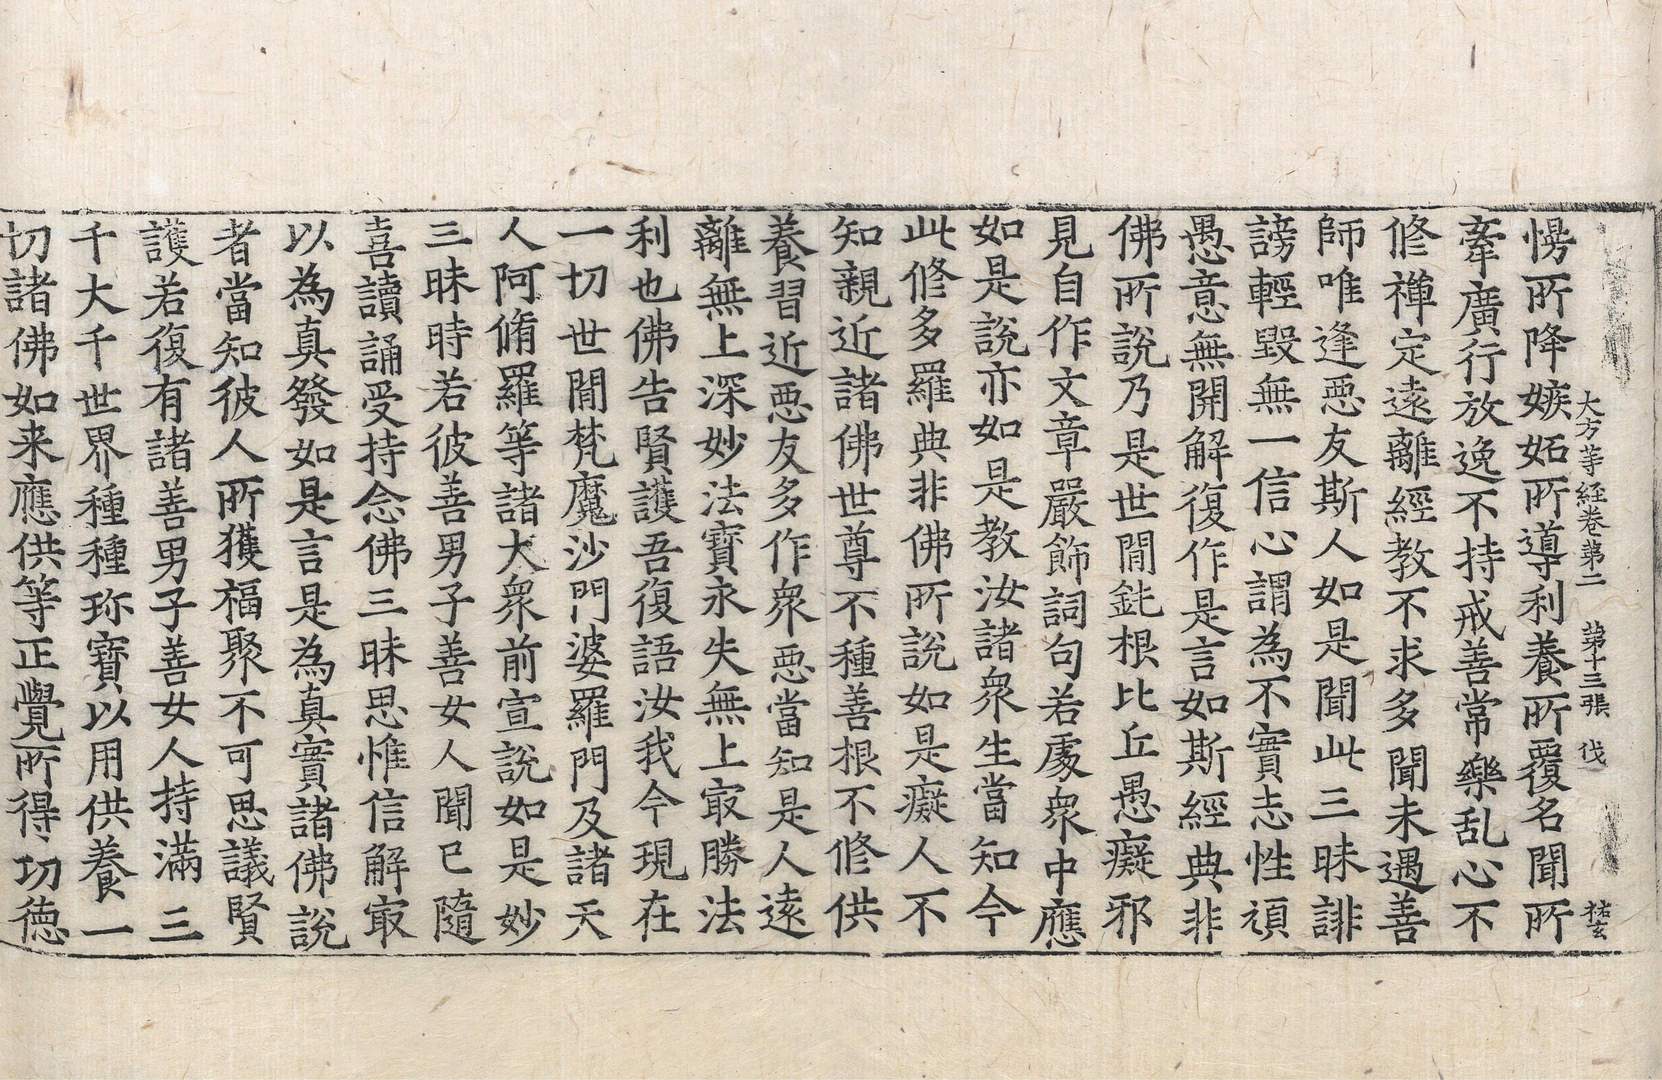 大方等経卷第二 第十三張 伐
愓所降嫉妬所導利養所覆名聞所
牽廣行放逸不持戒善常樂乱心不
修禅定遠離經教不求多聞未遇善
師唯逢悪友斯人如是聞此三昧誹
謗輕毀無一信心謂為不實志性頑
愚意無開解復作是言如斯經典非
佛所說乃是世間鈍根比丘愚癡邪
見自作文章嚴飾詞句若處衆中應
如是說亦如是教汝諸衆生當知今
此修多羅典非佛所說如是癡人不
知親近諸佛世尊不種善根不修供
養習近悪友多作衆悪當知是人遠
離無上深妙法寶永失無上㝡勝法
利也佛告賢護吾復語汝我今現在
一切世間梵魔沙門婆羅門及諸天
人阿脩羅等諸大衆前宣說如是妙
三昧時若彼善男子善女人聞已隨
喜讀誦受持念佛三昧思惟信解㝡
以為真發如是言是為真實諸佛說
者當知彼人所獲福聚不可思議賢
護若復有諸善男子善女人持滿三
千大千世界種種珎寶以用供養一
切諸佛如来應供等正覺所得功德